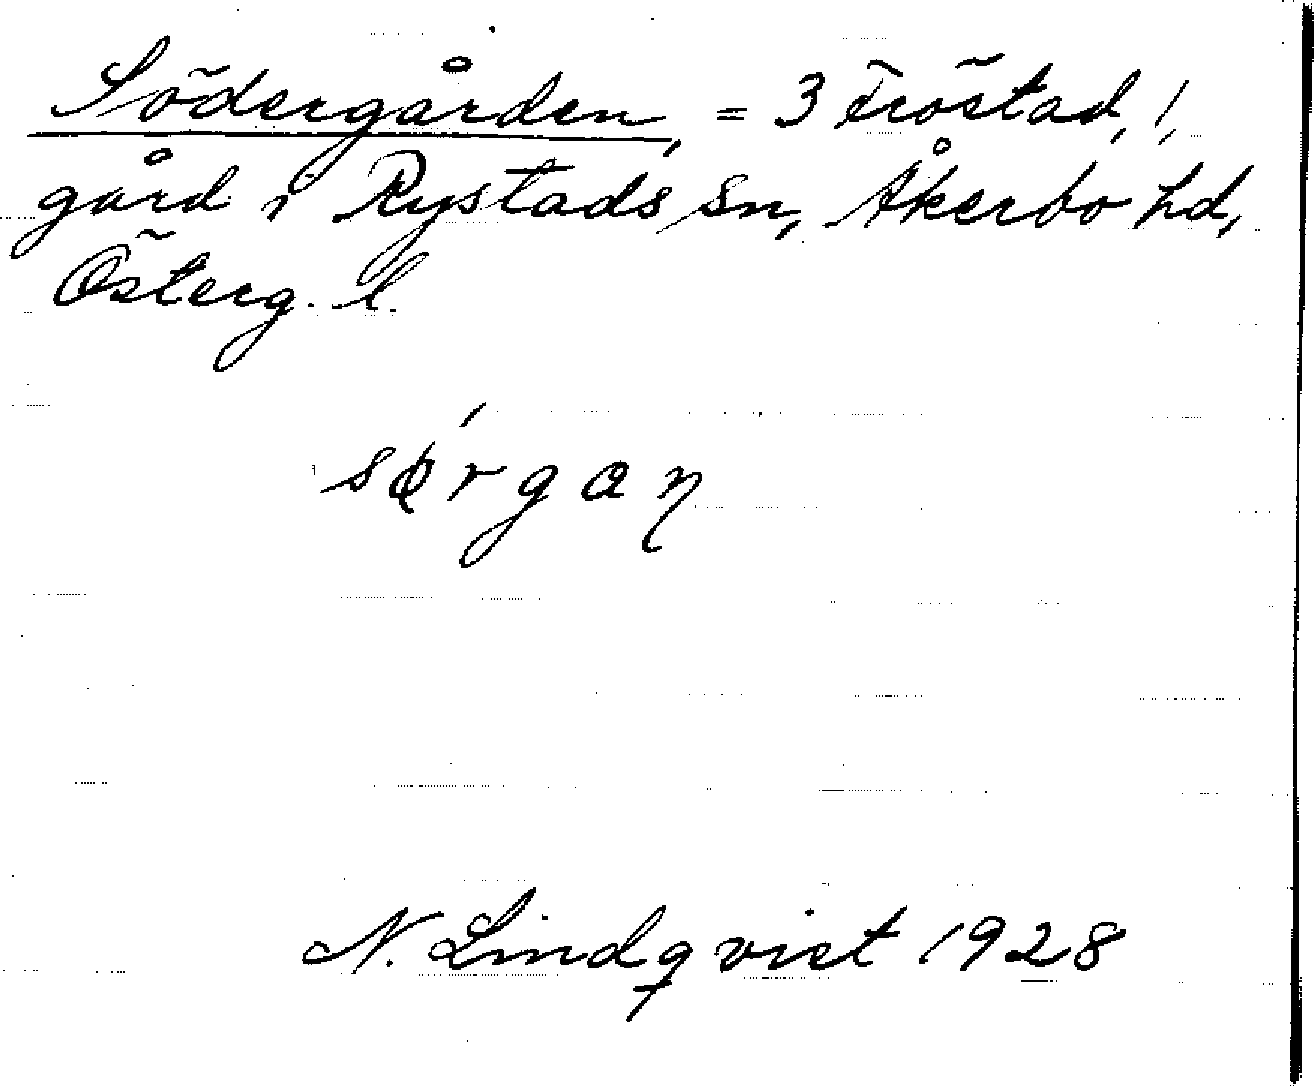 Södergården, = 3 Tröstad, 1,
gård i Rystads sn, Åkerbo hd,
Österg. l.
sø´rgaɳ
N. Lindqvist 1928